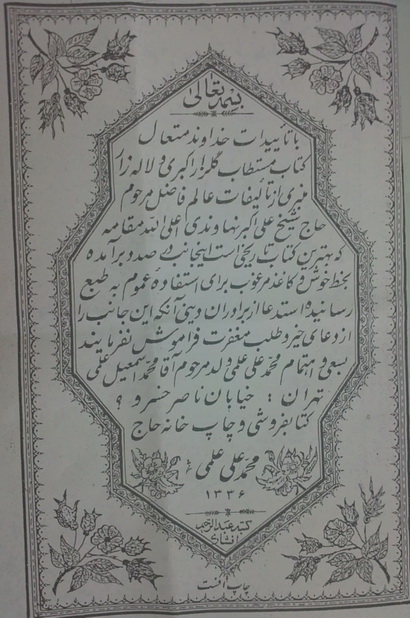 بسمه تعالی
با تاییدات خداوند متعال
کتاب مستطاب گلزار اکبری و لاله زار
منبری از تألیفات عالم فاضل مرحوم
حاج شیخ علی اکبر نهاوندی اعلی الله مقامه
که بهترین کتاب تاریخی است اینجانب در صدد برآمده
بخط خوش و کاغذ مرغوب برای استفاده عموم به طبع
رسانیده استدعا از برادران دینی آنکه این جانب را
از دعای خیر و طلب مغفرت فراموش نفرمایند
بسعی و اهتمام محمد علی علمی ولد مرحوم آقا محمد اسمعیل علمی
تهران : خیابان ناصر خسرو ؟
کتابفروشی و چاپ خانه حاج
محمد علی علمی
۱۳۳۶
کتبه عبدالرحیم
افشاری
چاپ افست